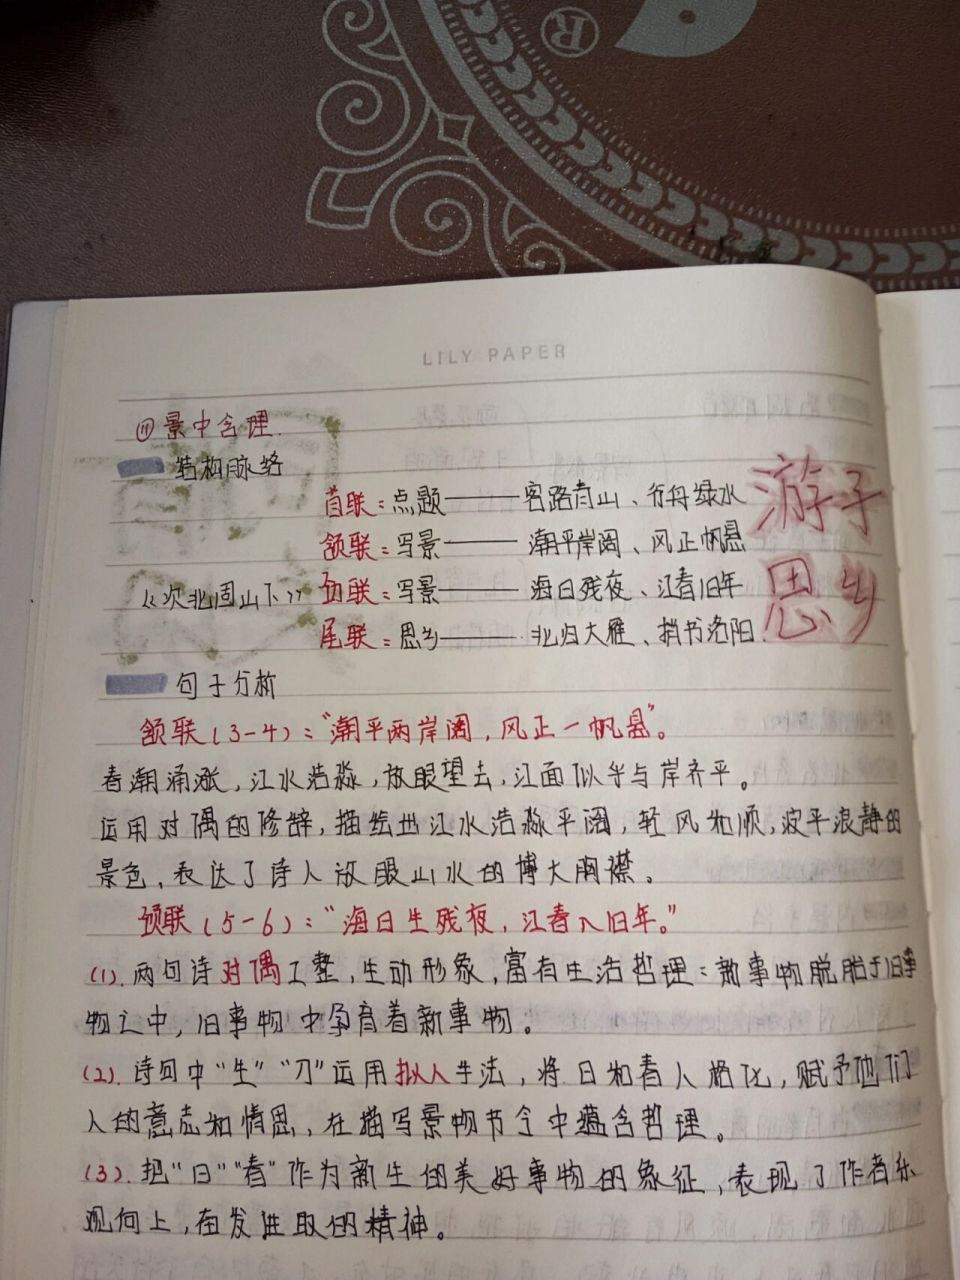 R
LILY PAPER
⑪景中含理.
结构脉络
首联:点题——客路青山、行舟绿水
颔联:写景——潮平岸阔、风正帆悬
《次北固山下》颈联:写景——海日残夜、江春旧年
尾联:思乡——北归大雁、捎书洛阳.
游子
思乡
句子分析
颔联(3-4):"潮平两岸阔,风正一帆悬"。
春潮涌涨,江水浩淼,放眼望去,江面似乎与岸齐平。
运用对偶的修辞,描绘出江水浩淼平阔,轻风和顺,波平浪静的
景色,表达了诗人放眼山水的博大胸襟。
颈联(5-6):"海日生残夜,江春入旧年。"
(1).两句诗对偶工整,生动形象,富有生活哲理:新事物脱胎于旧事
物之中,旧事物中孕育着新事物。
(2).诗句中"生""入"运用拟人手法,将日和春人格化,赋予他们
人的意志和情思,在描写景物节令中蕴含哲理。
(3).把"日""春"作为新生的美好事物的象征,表现了作者乐
观向上,奋发进取的精神。